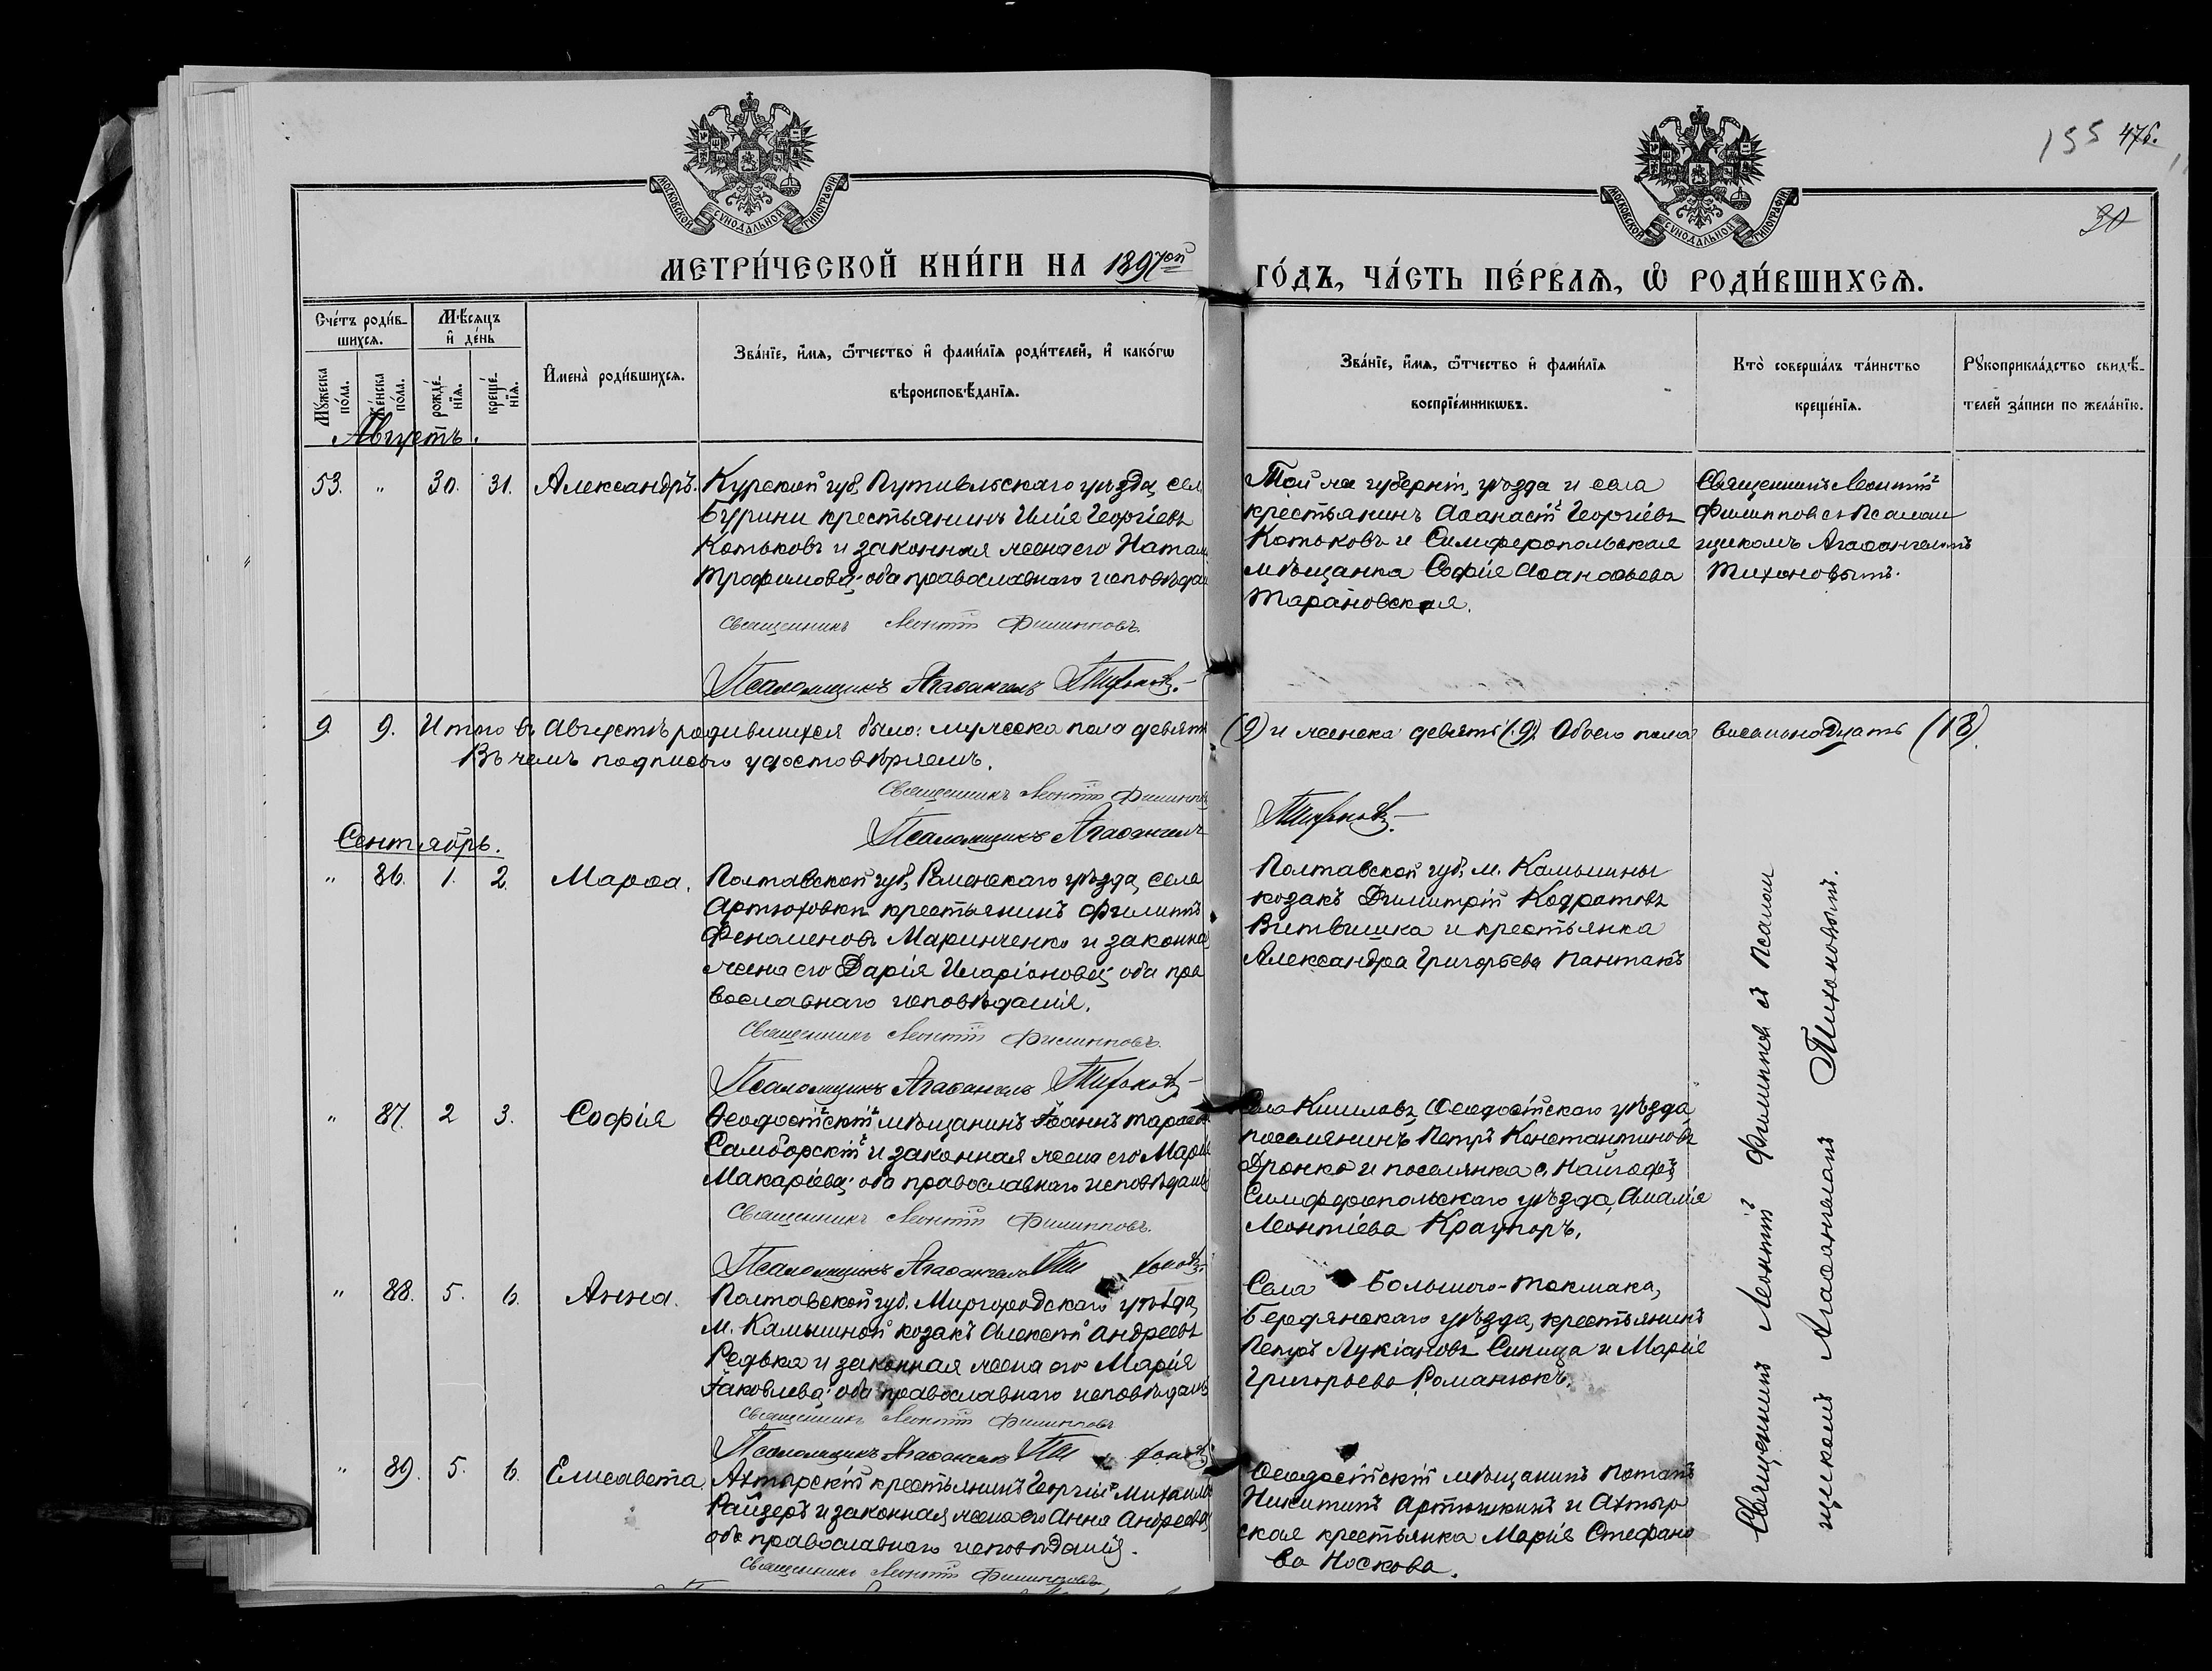 155 476.
30
МОСКОВСКОЙ СѴНОДАЛЬНОЙ ТИПОГРАФІИ
МОСКОВСКОЙ СѴНОДАЛЬНОЙ ТИПОГРАФІИ
МЕТРИ́ЧЕСКОЙ КНИ́ГИ НА 1897ой ГО́ДЪ, ЧА́СТЬ ПЕ́РВАѦ, Ѡ҆ РОДИ́ВШИХСѦ.
Сче́тъ роди́в-
шихсѧ.
Мꙋ́жеска по́ла.
Же́нска по́ла.
Мѣ́сѧцъ
и҆ де́нь
рожде́-нїѧ.
креще́-нїѧ.
И҆мена̀ роди́вшихсѧ.
Зва́нїе, и҆́мѧ, ѻ҆́тчество и҆ фами́лїѧ роди́телей, и҆ како́гѡ
вѣроисповѣ́данїѧ.
Зва́нїе, и҆́мѧ, ѻ҆́тчество и҆ фами́лїѧ
воспрїе́мникѡвъ.
Кто̀ соверша́лъ та́инство
креще́нїѧ.
Рꙋкоприкла́дство свидѣ́-
телей за́писи по жела́нїю.
Августъ.
53. " 30. 31. Александръ.
Курской губ. Путивльскаго уѣзда, сел
Бурини крестьянинъ Илія Георгіевъ
Котьковъ и законная жена его Натал
Трофимова; оба православнаго исповѣдан
Священникъ Леонтій Филипповъ.
Псаломщикъ Агаѳангелъ Тихоновъ.
Той же губерніи, уѣзда и села
крестьянинъ Аѳанасій Георгіевъ
Котьковъ и Симферопольская
мѣщанка Софія Аѳанасьева
Тарановская.
Священникъ Леонтій
Филипповъ съ Псалом
щикомъ Агаѳангеломъ
Тихоновымъ.
9. 9. Итого въ Августѣ родившихся было: мужеска пола девять (9) и женска девять (9). Обоего пола восемьнадцать (18).
Въ чемъ подписью удостовѣряемъ.
Священникъ Леонтій Филиппов
Псаломщикъ Агаѳангелъ Тихоновъ.
Сентябрь.
" 86. 1. 2. Марѳа.
Полтавской губ., Роменскаго уѣзда, села
Артюховки крестьянинъ Филиппъ
Маринченко и законна
жена его Дарія Иларіонова; оба пра
вославнаго исповѣданія.
Священникъ Леонтій Филипповъ.
Псаломщикъ Агаѳангелъ Тихоновъ.
Полтавской губ. м. Камышны
козакъ Димитрій Кодратовъ
и крестьянка
Александра Григорьева
" 87. 2 3. Софія
Ѳеодосійскій мѣщанинъ Іоаннъ Тарасов
Самборскій и законная жена его Марія
Макаріева; оба православнаго исповѣдан
Священникъ Леонтій Филипповъ.
Псаломщикъ Агаѳангелъ Тихоновъ.
Села Ѳеодосійскаго уѣзда,
поселянинъ Петръ Константиновъ
Дронко и поселянка с. Найгофъ
Симферопольскаго уѣзда, Амалія
Леонтіева
" 88. 5. 6. Анна.
Полтавской губ. Миргородскаго уѣзда,
м. Камышной козакъ Алексій Андреевъ
Редька и законная жена его Марія
Іаковлева; оба православнаго исповѣдан
Священникъ Леонтій Филипповъ
Псаломщикъ Агаѳангелъ Тихоновъ
Села Большого-Токмака,
Бердянскаго уѣзда, крестьянинъ
Петръ Лукіановъ Синица и Марія
Григорьева Романюкъ.
" 89. 5. 6. Елисавета.
Ахтырскій крестьянинъ Георгій Михаилов
Райзеръ и законная жена его Анна Андреева;
оба православнаго исповѣданія.
Священникъ Леонтій Филипповъ.
Ѳеодосійскій мѣщанинъ Потапъ
Никитинъ Артюшкинъ и Ахтыр
ская крестьянка Марія Стефано
ва Носкова.
Священникъ Леонтій Филипповъ съ Псалом
щикомъ Агаѳангеломъ Тихоновымъ.